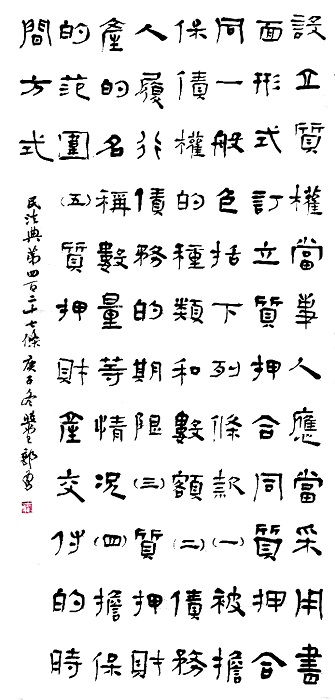 設立質權當事人應當采用書
面形式訂立質押合同質押合
同一般包括下列條款(一)被擔
保債權的種類和數額(二)債務
人履行債務的期限(三)質押財
產的名稱數量等情況(四)擔保
的范圍(五)質押財產交付的時
間方式
民法典第四百二十七條 庚子冬 郭勇